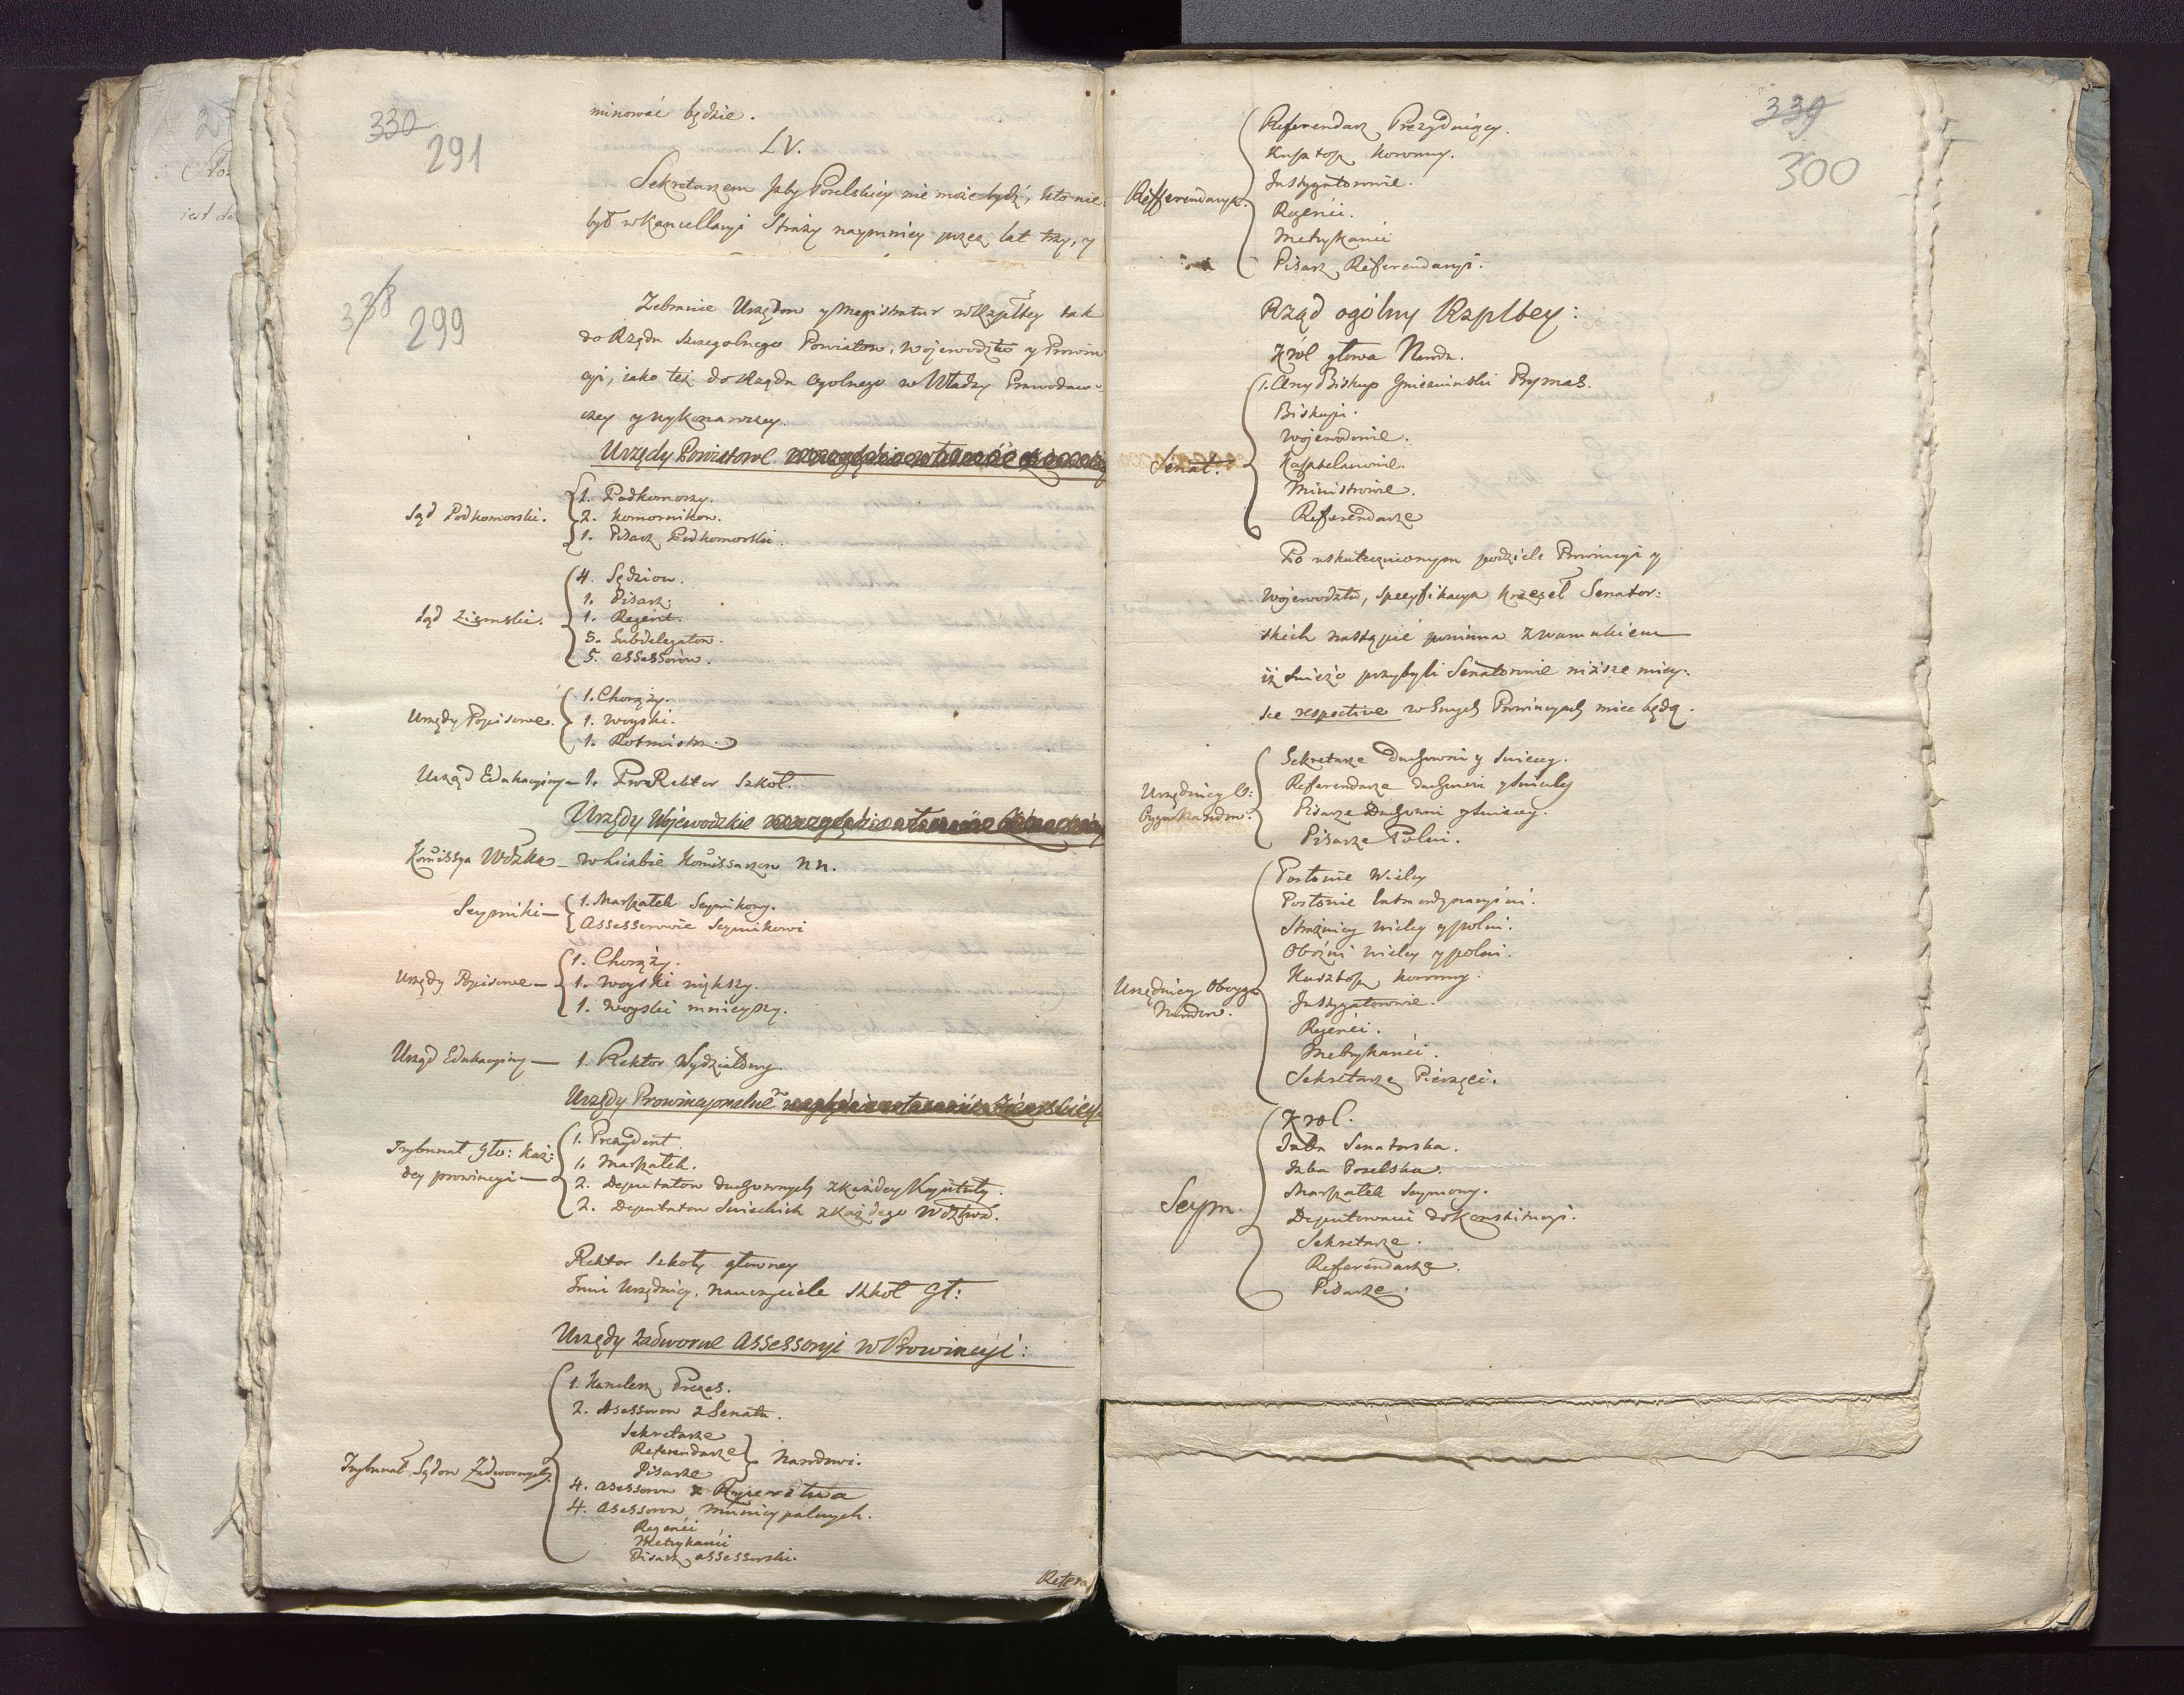 330
291
minować będzie.
LV.
Sekretarzem Izby Poselskiey nie może bydź, kto nie
był w Kancellaryi Straży naymniey przez lat trzy, y
338
299
Zebranie Urzędow y Magistratur w Rzpltey tak
do Rządu szczegolnego Powiatow, Wojewodztw y Prowin
cyi, iako też do Rządu ogolnego w Władzy Prawodaw-
czey y wykonawczey.
Urzędy Powiatowe
Sąd Podkomorski.
1. Podkomorzy.
2. Komornikow.
1. Pisarz Podkomorski.
Sąd Ziemski.
4. Sędziow.
1. Pisarz.
1. Regent.
5. Subdelegatow.
5. Assessorow.
Urzędy Popisowe.
1. Chorąży.
1. Woyski.
1. Rotmistrz.
Urząd Edukacyiny – 1. ProRektor Szkoł.
Urzędy Wojewodzkie
Kommissya Wdzka – w liczbie Kommissarzow nn.
Seymiki –
1. Marszałek Seymikowy.
Assessorowie Seymikowi
Urzędy Popisowe –
1. Chorąży.
1. Woyski większy.
1. Woyski mnieyszy.
Urząd Edukacyiny – 1. Rektor Wydziałowy.
Urzędy Prowincyonalne
Trybunał Głó: każ:
dey prowincyi –
1. Prezydent
1. Marszałek.
2. Deputatow duchownych z każdey Kapituły.
2. Deputatow Swieckich z każdego Wdztwa.
Rektor Szkoły głowney
Inni Urzędnicy, nauczyciele Szkoł Gł:
Urzędy Zadworne Assessoryi w Prowincyi:
Trybunał Sądow Zadwornych.
1. Kanclerz Prezes.
2. Asessorow z Senatu.
Sekretarze
Referendarze
Pisarze
Narodowi.
4. Asessorow z Rycerstwa
4. Asessorow municypalnych.
Regenci
Metrykanci
Pisarz assessorski.
339
300
Refferendarya.
Referendarz Prezyduiący.
Kusztosz Koronny.
Instygatorowie.
Regenci.
Metrykanci
Pisarz Referendaryi.
Rząd ogólny Rzpltey:
Król głowa Narodu.
Senat.
1. Arcy Biskup Gnieznieński Prymas.
Biskupi.
Wojewodowie.
Kasztelanowie.
Ministrowie.
Referendarze
Po uskutecznionym podziele Prowincyi y
Wojewodztw, specyfikacya Krzeseł Senator:
skich nastąpić powinna z warunkiem
iż świeżo przybyli Senatorowie niższe miey-
sce respective w Swych Prowincyach mieć będą.
Urzędnicy O:
boyga Narodow.
Sekretarze Duchowni y swieccy.
Referendarze duchowni y swieccy
Pisarze Duchowni y swieccy.
Pisarze Polni.
Urzędnicy Oboyga
Narodow.
Posłowie Wielcy
Posłowie Extraordynaryini.
Strażnicy wielcy y polni.
Oboźni wielcy y polni.
Kusztosz Koronny.
Instygatorowie.
Regenci.
Metrykanci.
Sekretarze Pieczęci.
Seym.
Krol.
Izba Senatorska.
Izba Poselska.
Marszałek Seymowy.
Deputowani do Konstitucyi.
Sekretarze.
Referendarze.
Pisarze.